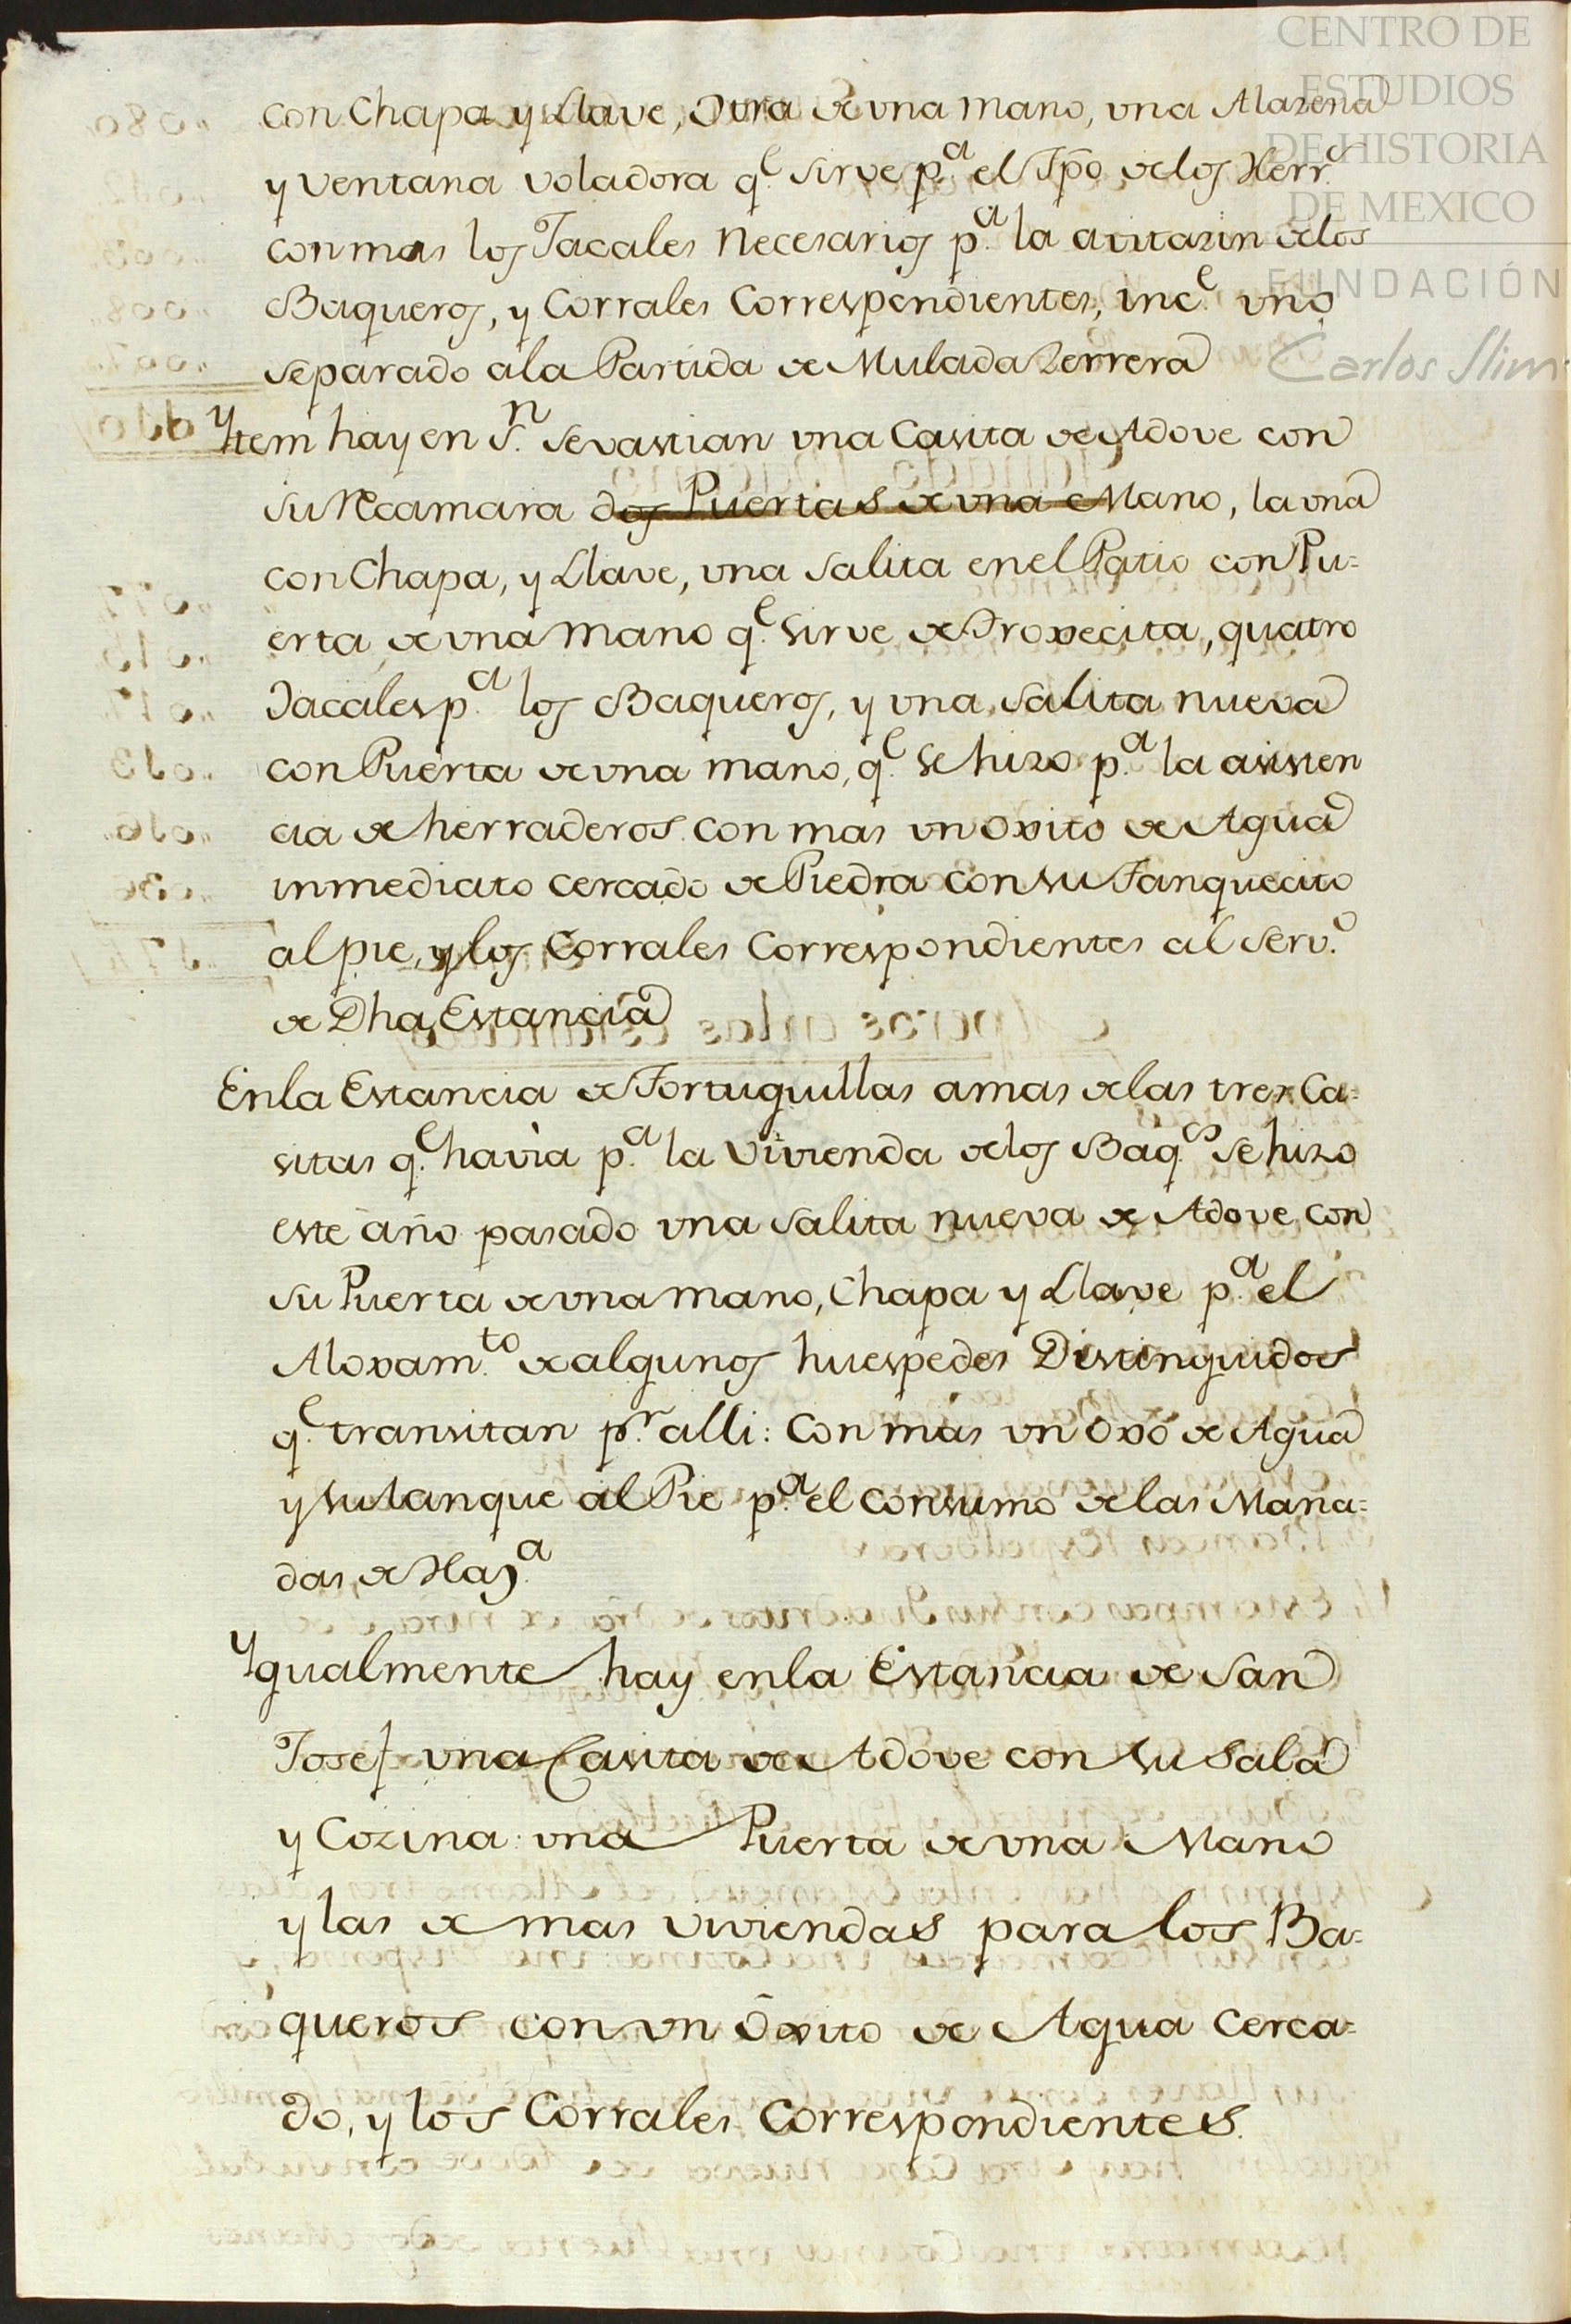 CENTRO DE
ESTUDIOS
DE HISTORIA
DE MEXICO
FUNDACIÓN
Carlos Slim
con Chapa y Llave, Otra de vna mano, vna Alazena
y ventana voladora q.e sirve p.a el Tpõ de los Herr.s
con mas los Jacales Necesarios p.a la avitazin de los
Baqueros, y Corrales Correspondientes, inc.e vno
separado a la Partida de Mulada Zerrera
Ytem hay en S.n Sevastian vna Casita de Adove con
su Recamara dos Puertas de vna Mano, la vna
con Chapa, y Llave, vna salita en el Patio con Pu=
erta de vna mano q.e sirve de Troxecita, quatro
Jacales p.a los Baqueros, y vna salita nueva
con Puerta de vna mano, q.e se hizo p.a la asisten
cia de herraderos con mas vn oxito de Agua
inmediato cercado de Piedra con su Tanquecito
al pie, y los Corrales Correspondientes al serv.o
de Dha Estancia
En la Estancia de Tortuguillas amas de las tres Ca=
sitas q.e havia p.a la Vivienda de los Baq.s se hizo
este año pasado vna salita nueva de Adove con
su Puerta de vna mano, Chapa y Llave p.a el
Aloxam.to de algunos huespedes Distinguidos
q.e transitan p.r alli: Con mas vn Oxo de Agua
y su tanque al Pie p.a el consumo de las Mana=
das de Haz.a
Ygualmente hay en la Estancia de San
Josef vna Casita de Adove con su Sala
y Cozina: vna Puerta de vna Mano
y las de mas viviendas para los Ba=
queros con vn Oxito de Agua Cerca=
do, y los Corrales Correspondientes.